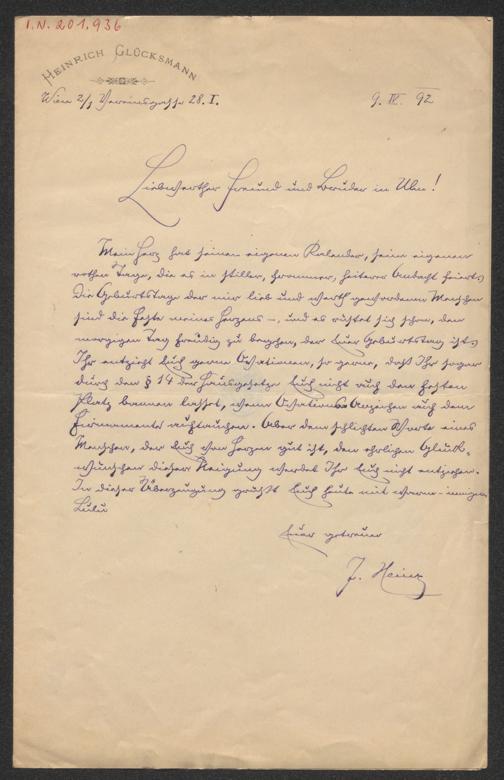 I.N. 201.936
HEINRICH GLÜCKSMANN
Wien 2/1 Vereinsgasse 28. I.
9. IV. 92
Liebwerther Freund und Bruder in Ulm!
Mein Herz hat seinen eigenen Kalender, seine eigenen
rothen Tage, die es in stiller, frommer, heiterer Andacht feiert;
die Geburtstage der mir lieb und werth gewordenen Menschen
sind die Feste meines Herzens –, und es rüstet sich schon, den
morgigen Tag freudig zu begehen, der Euer Geburtstag ist.
Ihr entzieht Euch gerne Ovationen, so gerne, daß Ihr sogar
durch den § 14 der Hausgesetze Euch nicht auf den festen
Platz bannen lasset, wenn Ovations Anzeichen auf dem
Firmamente auftauchen. Aber dem schlichten Worte eines
Menschen, der Euch von Herzen gut ist, den ehrlichen Glück-
wünschen dieser Neigung werdet Ihr Euch nicht entziehen.
In dieser Überzeugung grüßt Euch heute mit warm-innigem
Lulu
Euer getreuer
J. Heinz